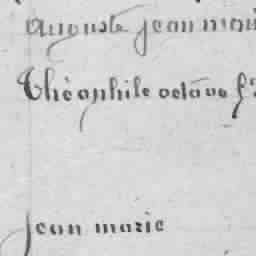 auguste jean mari
Théophile octave f
jean marie